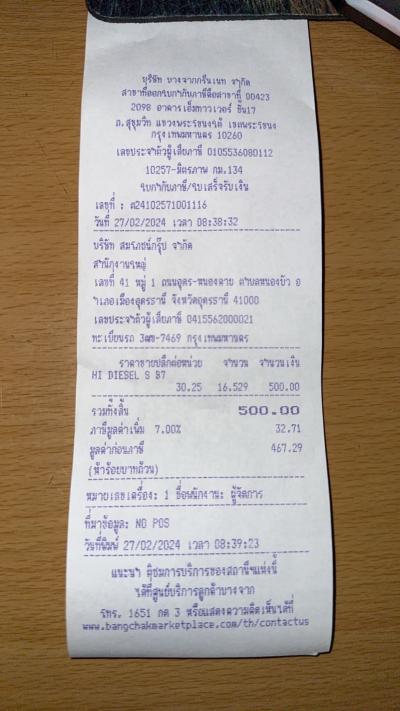 บริษัท บางจากกรีนเนท จำกัด
สาขาที่ออกใบกำกับภาษีคือสาขาที่ 00423
2098 อาคารเอ็มทาวเวอร์ ชั้น17
ถ.สุขุมวิท แขวงพระโขนงใต้ เขตพระโขนง
กรุงเทพมหานคร 10260
เลขประจำตัวผู้เสียภาษี 0105536080112
10257-มิตรภาพ กม.134
ใบกำกับภาษี/ใบเสร็จรับเงิน
เลขที่ : ศ24102571001116
วันที่ 27/02/2024 เวลา 08:38:32
บริษัท สมโภชน์กรุ๊ป จำกัด
สำนักงานใหญ่
เลขที่ 41 หมู่ 1 ถนนอุดร-หนองคาย ตำบลหนองบัว อ
ำเภอเมืองอุดรธานี จังหวัดอุดรธานี 41000
เลขประจำตัวผู้เสียภาษี 0415562000021
ทะเบียนรถ 3ฒฆ-7469 กรุงเทพมหานคร
ราคาขายปลีกต่อหน่วย จำนวน จำนวนเงิน
HI DIESEL S B7
30.25 16.529 500.00
รวมทั้งสิ้น 500.00
ภาษีมูลค่าเพิ่ม 7.00% 32.71
มูลค่าก่อนภาษี 467.29
(ห้าร้อยบาทถ้วน)
หมายเลขเครื่อง: 1 ชื่อพนักงาน: ผู้จัดการ
ที่มาข้อมูล: NO POS
วันที่พิมพ์ 27/02/2024 เวลา 08:39:23
แนะนำ ติชมการบริการของสถานีฯแห่งนี้
ได้ที่ศูนย์บริการลูกค้าบางจาก
โทร. 1651 กด 3 หรือแสดงความคิดเห็นได้ที่
www.bangchakmarketplace.com/th/contactus